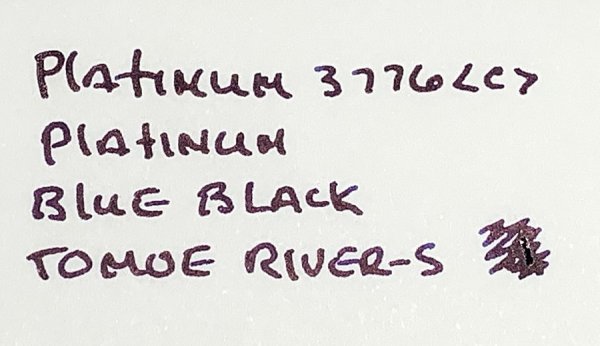 PLATINUM 3776<C>
PLATINUM
BLUE BLACK
TOMOE RIVER-S